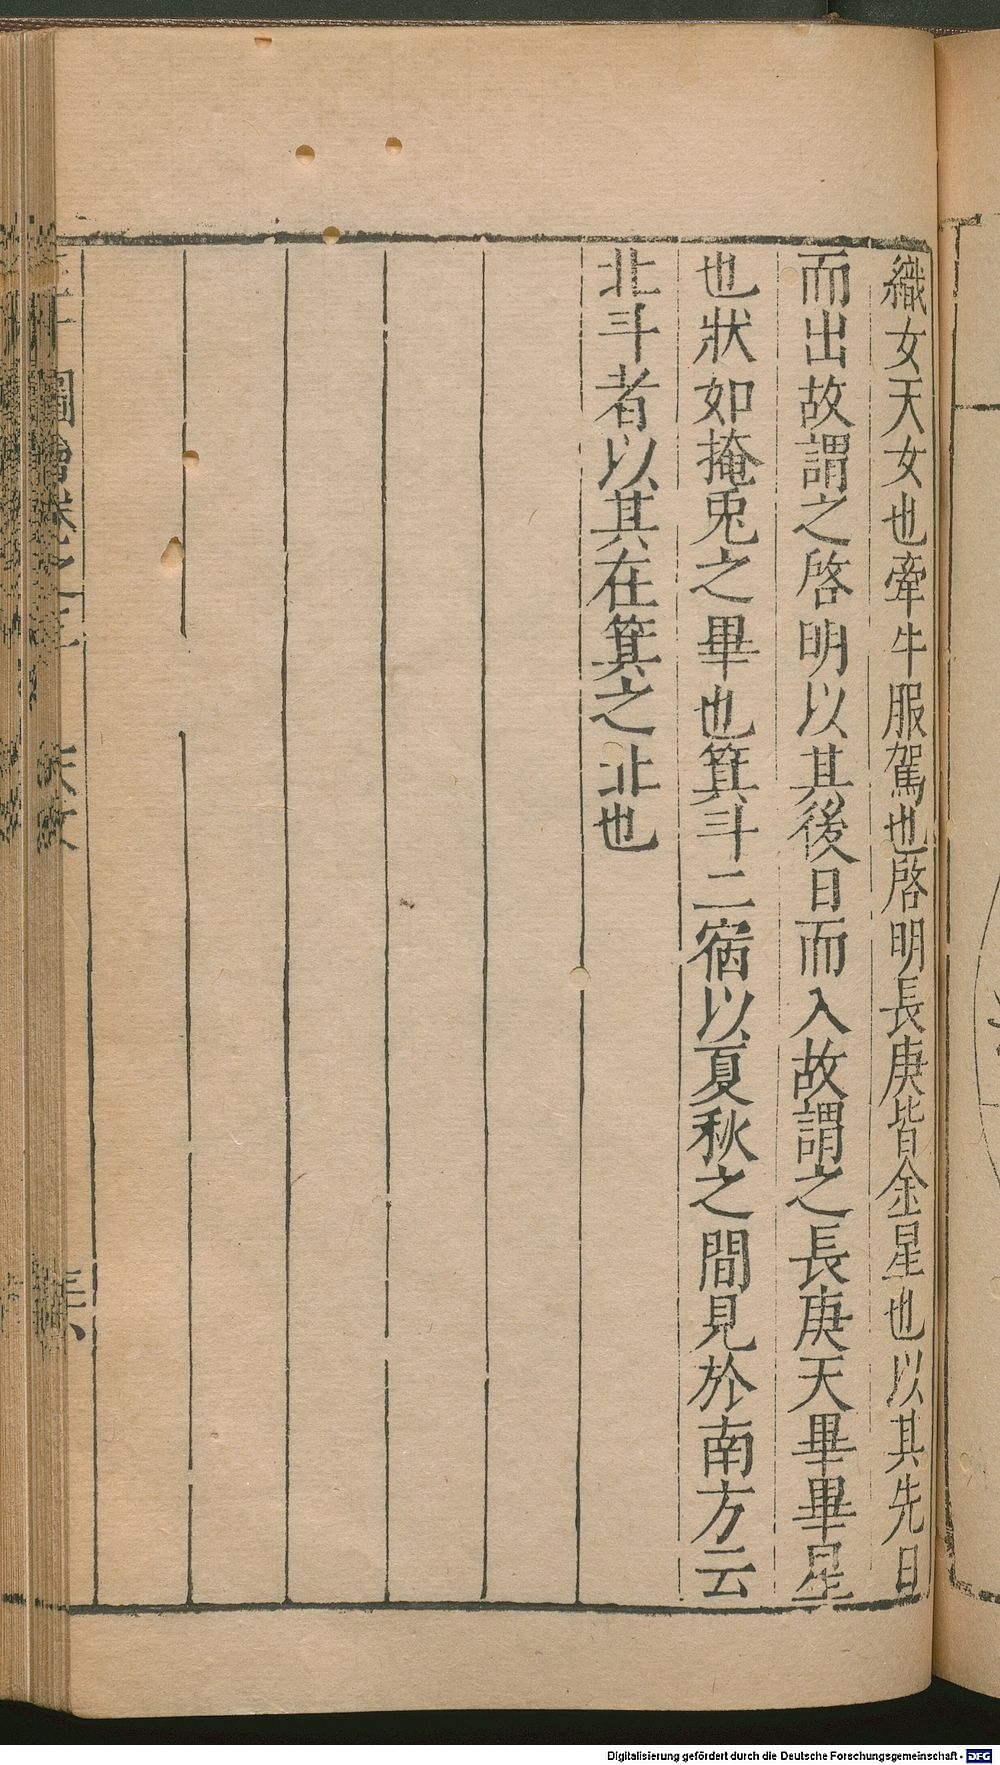 織女天女也牽牛服駕也啓明長庚皆金星也以其先日
而出故謂之啓明以其後日而入故謂之長庚天畢畢星
也狀如掩兎之畢也箕斗二宿以夏秋之間見於南方云
北斗者以其在箕之北也
圖
卷之三
Digitalisierung gefördert durch die Deutsche Forschungsgemeinschaft - DFG